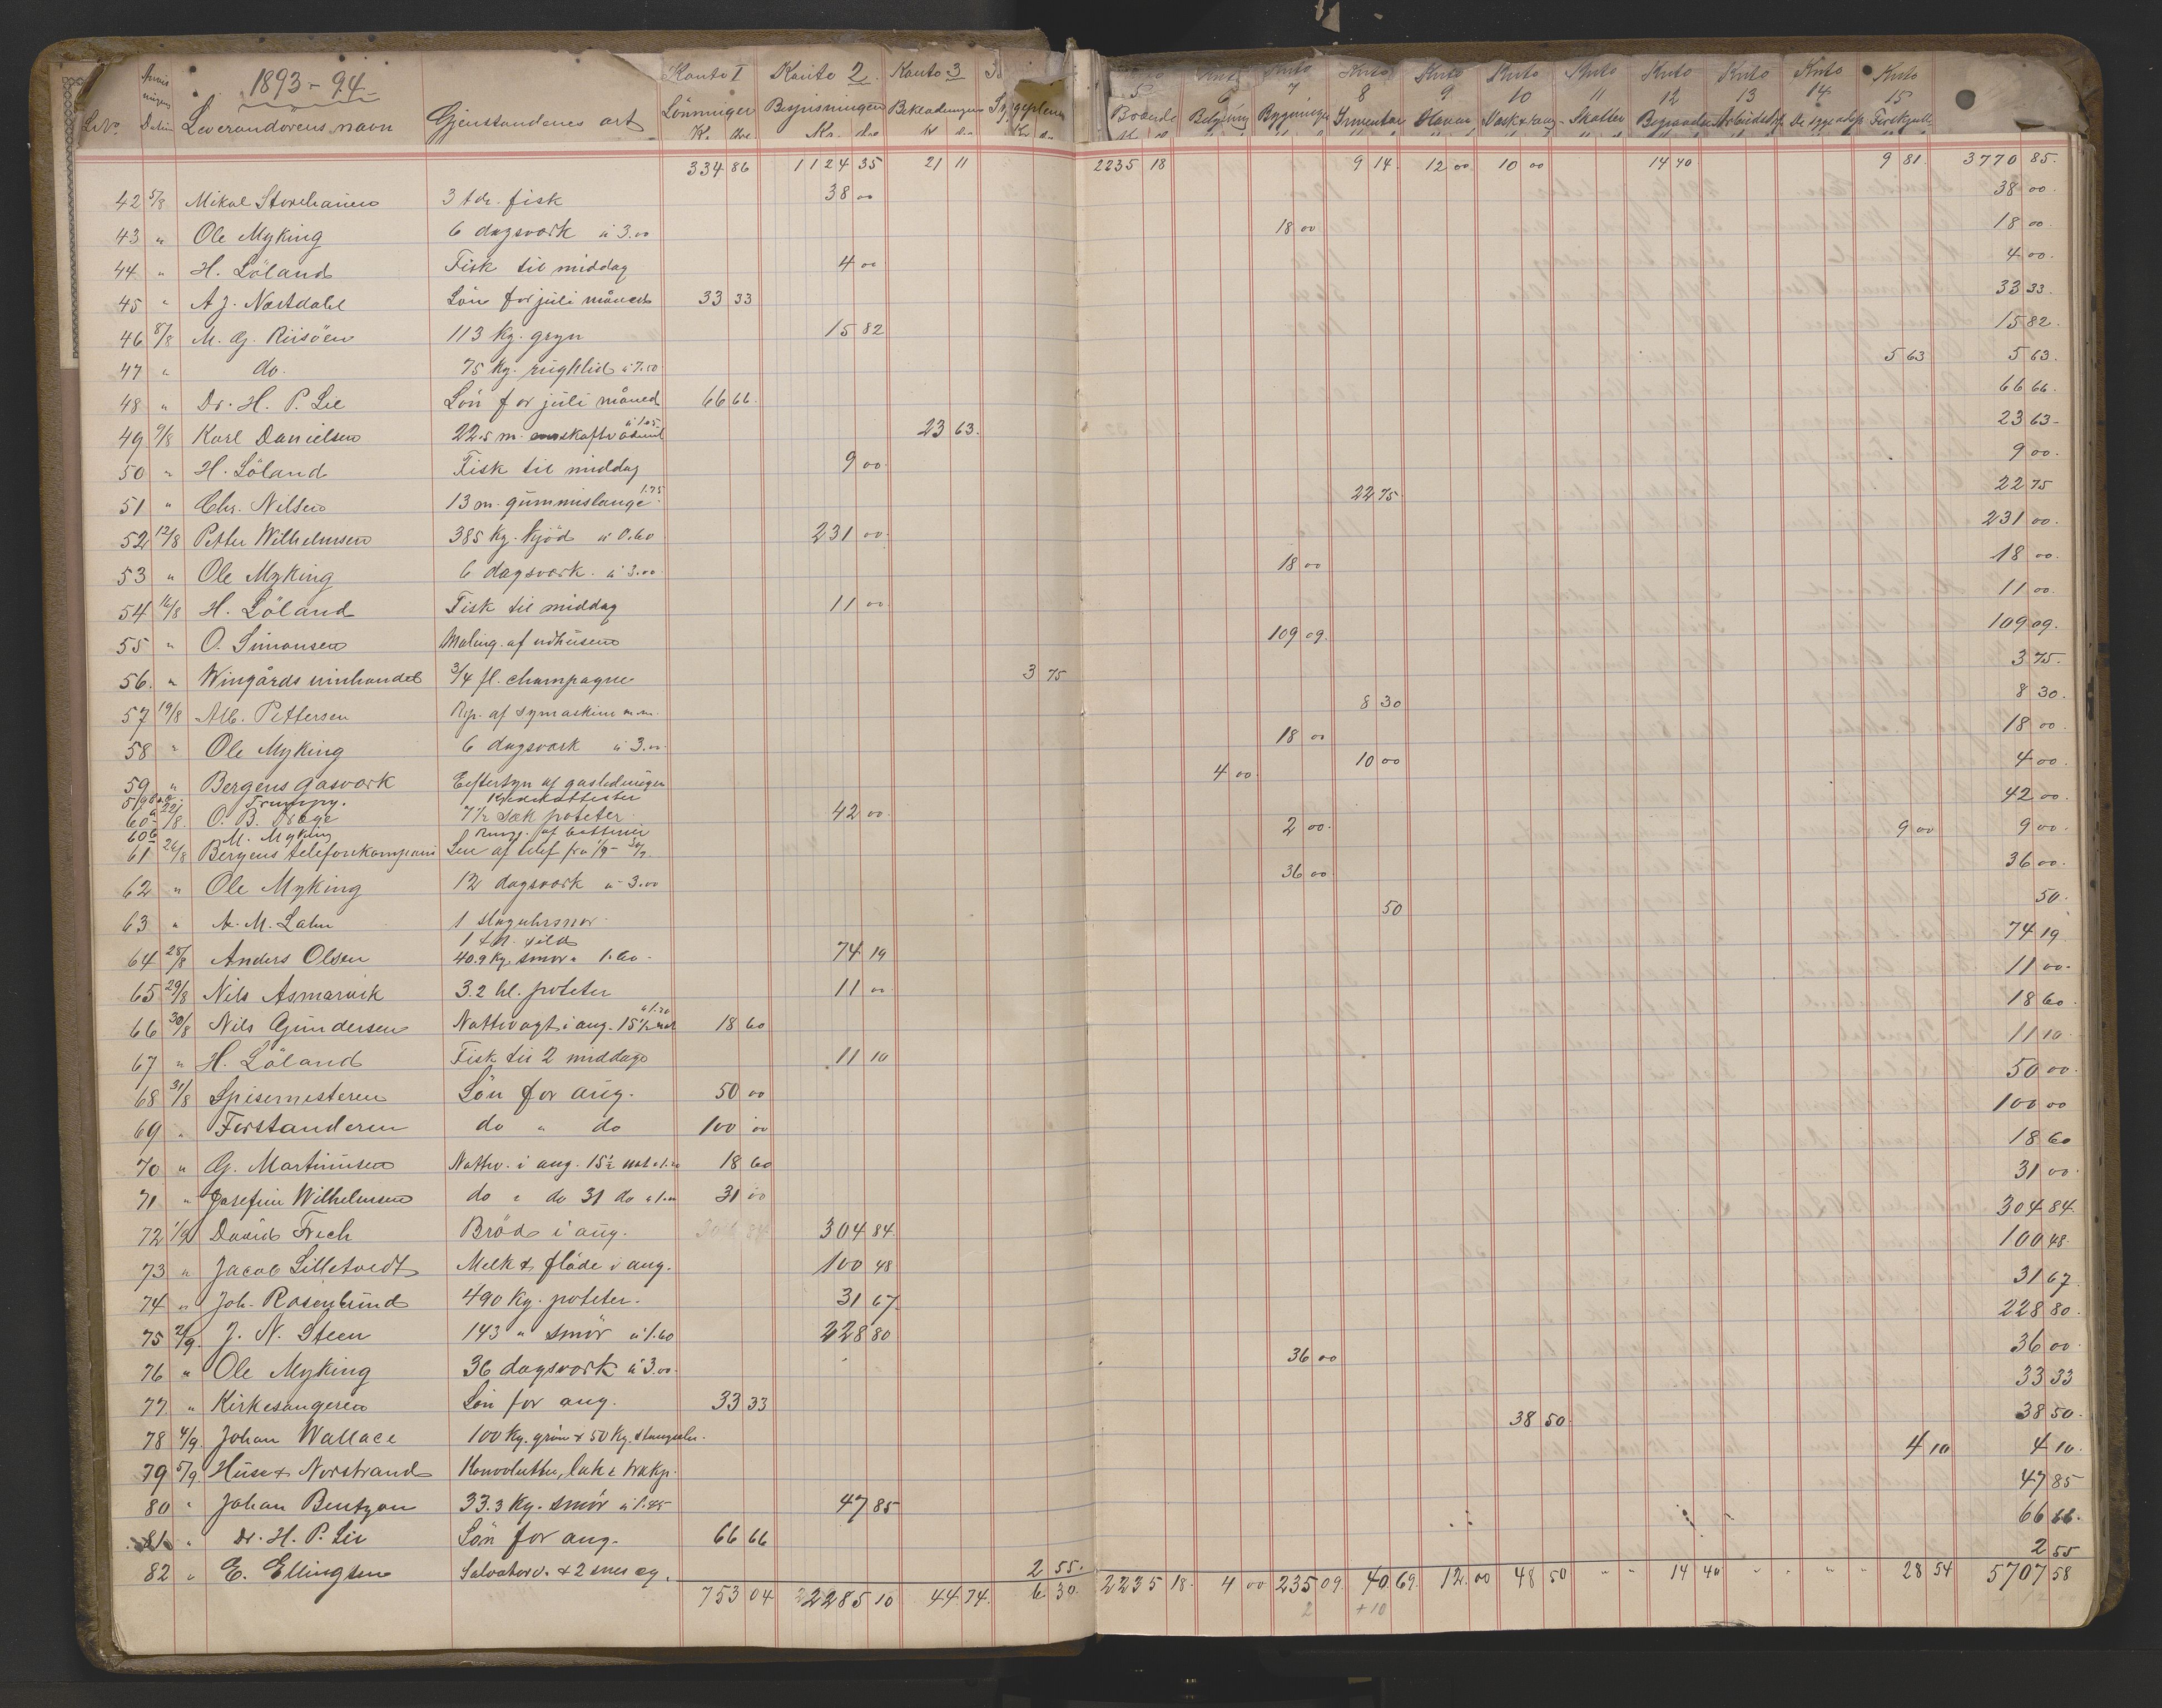 1893-94
LNo. Datum Leverandørens navn Gjenstandenes art Konto 1 Lønninger Kr. Øre Konto 2 Bespisningen Kr. Øre Konto 3 Beklædningen Kr Sygeplein Kr.
5 Brænde 6 Belysning Knto 7 Bygninger Knto 8 Inventar Knto 9 Knto 10 Vask & reng. Knto 11 Skatter Knto 12 Begravelse Knto 13 Knto 14 Knto 15
334 86 1124 35 21 11 2235 18 9 14 12 00 10 00 14 40 9 81 3770 85
42 5/8 Mikal Storehaueno 3 tdr. fisk 38 00 38 00
43 " Ole Myking 6 dagsværk à 3.00 18 00 18 00
44 " H. Löland Fisk til middag 4 00 4 00
45 " A J. Næstdahl Lön for juli måned 33 33 33 33
46 8/8 M. G. Riisöen 113 Kg. gryn 15 82 15 82
47 " do. 75 Kg. à 7.50 5 63 5 63
48 " Dr. H. P. Lie Lön for juli måned 66 66 66 66
49 9/8 Karl Danielsen 22.5 m. à 1.05 23 63 23 63
50 " H. Löland Fisk til middag 9 00 9 00
51 " Chr. Nilsen 13 m. gummislange 1.75 22 75 22 75
52 12/8 Petter Wilhelmsen 385 Kg. kjöd à 0.60 231 00 231 00
53 " Ole Myking 6 dagsværk à 3.00 18 00 18 00
54 16/8 H. Löland Fisk til middag 11 00 11 00
55 " O. Simonsen Maling af udhusene 109 09 109 09
56 " Wingårds vinhandel 3/4 fl. champagne 3 75 3 75
57 19/8 Alb. Pettersen Rep. af symaskine m.m. 8 30 8 30
58 " Ole Myking 6 dagsværk à 3.00 18 00 18 00
59 " Bergens gasværk Eftersyn af gasledningen 4 00 10 00 4 00
Trumpy.
60a 22/8 O. B. Drage 7 1/2 sæk poteter 42 00 42 00
60b M. Myking 2 00
61 26/8 Bergens telefonkompani Leie af telef fra 1/9 - 30/9 9 00 9 00
62 " Ole Myking 12 dagsværk à 3.00 36 00 36 00
63 " A. M. Lahn 1 slaguhrsnor 50 50
1 tn. sild
64 28/8 Anders Olsen 40.9 Kg. smør à 1.60 74 19 74 19
65 29/8 Nils Asmarvik 3.2 hl. poteter 11 00 11 00
66 30/8 Nils Gundersen Nattevagt i aug. 15 1/2 nat à 1.20 18 60 18 60
67 " H. Löland Fisk til 2 middage 11 10 11 10
68 31/8 Spisemesteren Lön for aug. 50 00 50 00
69 " Forstanderen do " do 100 00 100 00
70 " G. Martinusen Nattev. i aug. 15 1/2 nat à 1.20 18 60 18 60
71 " Josefine Wilhelmsen do " do 31 do à 1.00 31 00 31 00
72 1/9 David Frech Bröd i aug. 304 84 304 84
73 " Jacob Lilletvedt Melk & flöde i aug. 100 48 100 48
74 " Joh. Rosenlund 490 Kg. poteter. 31 67 31 67
75 2/9 J. N. Steen 143 " smör à 1.60 228 80 228 80
76 " Ole Myking 36 dagsværk à 3.00 36 00 36 00
77 " Kirkesangeren Lön for aug. 33 33 33 33
78 4/9 Johan Wallace 100 Kg. grön & 50 Kg. 38 50 38 50
79 5/9 Huse & Norstrand Konvolutter, lak & 4 10 4 10
80 " Johan Bentzon 33.3 Kg. smör à 1.45 47 85 47 85
81 " Dr. H. P. Lie Lön for aug. 66 66 66 66
82 " E. Ellingsen & 2 snes eg. 2 55 2 55
753 04 2285 10 44 74 6 30 2235 18 4 00 235 09 40 69 12 00 48 50 " " 14 40 " " " " 28 54 5707 58
2 +10